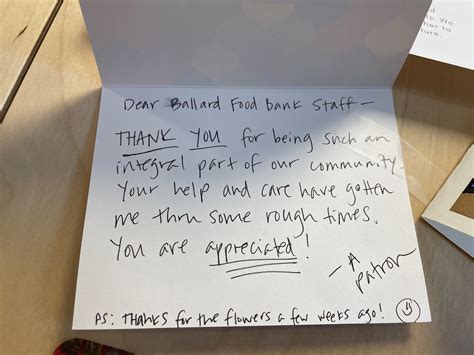 Dear Ballard Food Bank Staff –
THANK YOU for being such an
integral part of our community.
Your help and care have gotten
me thru some rough times.
You are appreciated!
– A
Patron
PS: THANKS for the flowers a few weeks ago!